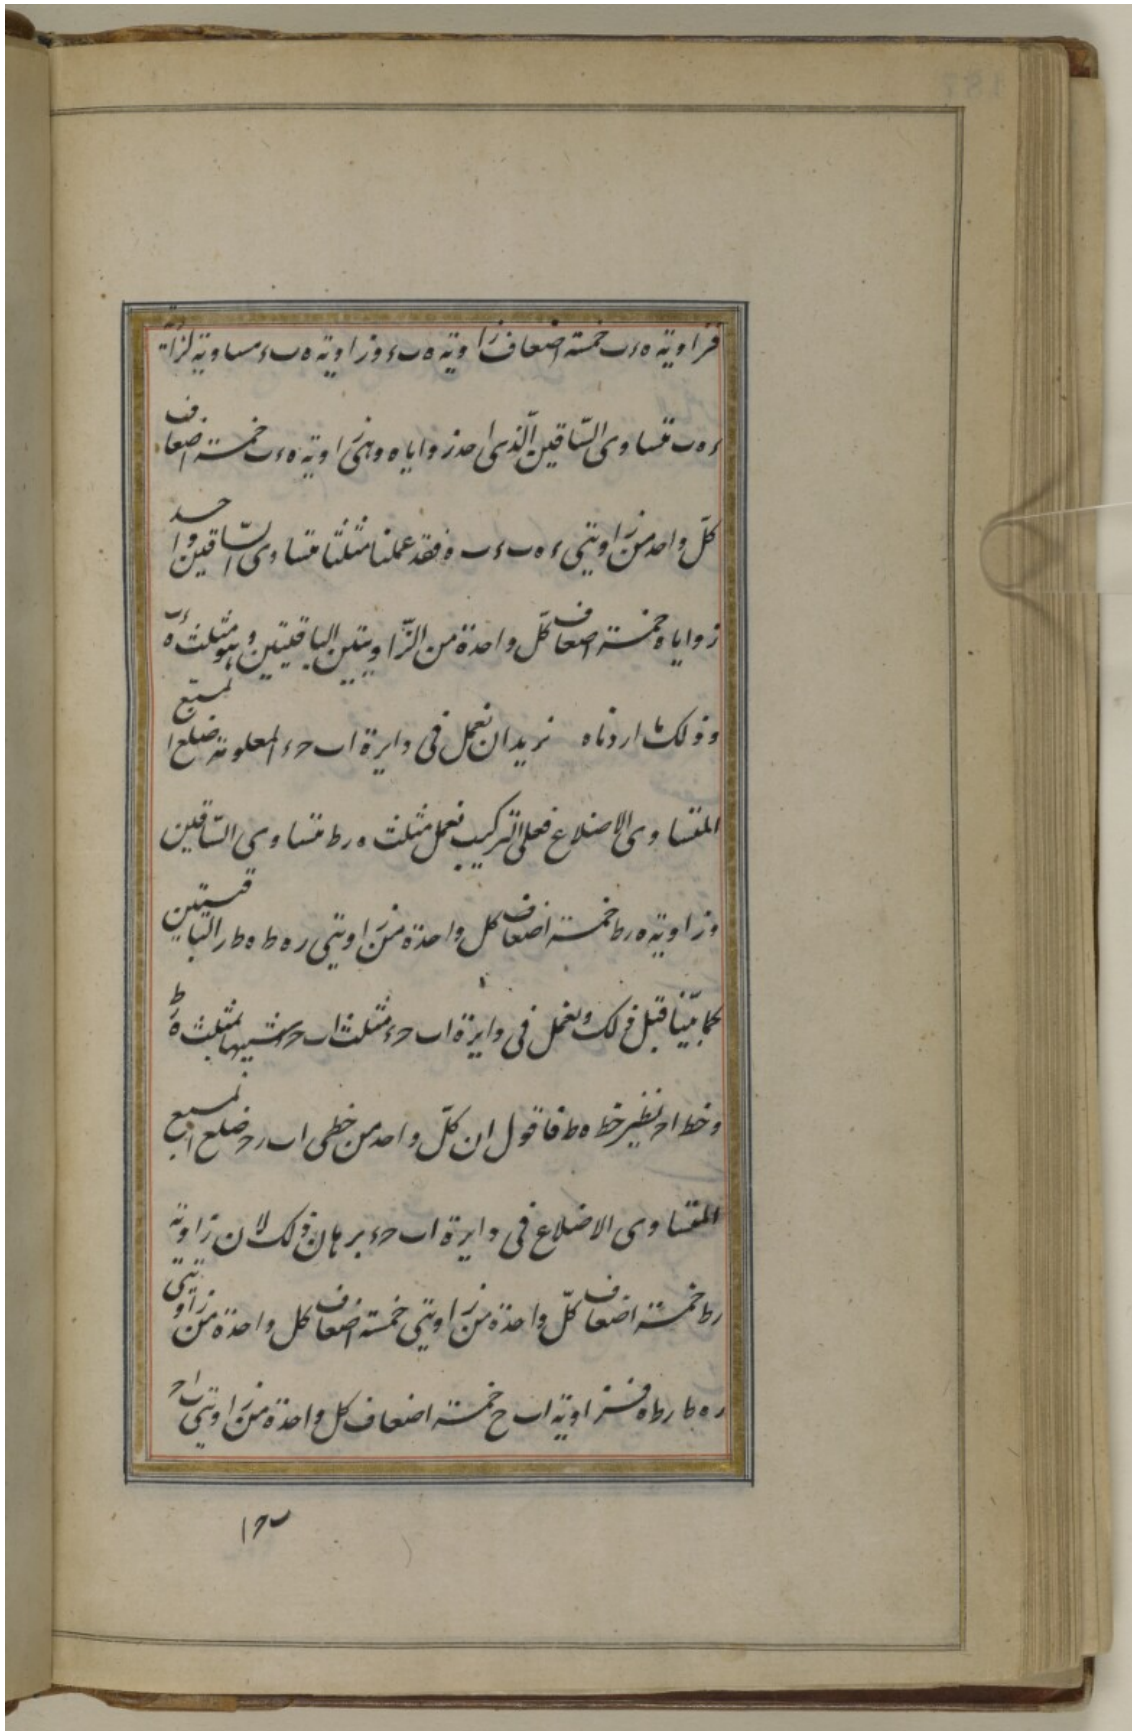 فزاویة ه‍ ء ب خمسة اضعاف زاویة ه‍ ب ء وزاویة ه‍ ب ء مساویة لزاویة
ء ه‍ ب متساوی السّاقین الّذی احد زوایاه وهی زاویة ه‍ ء ب خمسة اضعاف
کلّ واحد من زاویتی ء ه‍ ب ء ب ه‍ فقد عملنا مثلثا متساوی السّاقین واحد
زوایاه خمسة اضعاف کلّ واحدة من الزّاویتین الباقیتین وهو مثلث ء ب ه‍
وذلک ما اردناه نرید ان نعمل فی دایرة ا ب ح ء المعلومة ضلع المسبّع
المتساوی الاضلاع فعلی الترکیب نعمل مثلث ه‍ ر ط متساوی السّاقین
وزاویة ه‍ ر ط خمسة اضعاف کل واحدة من زاویتی ر ه‍ ط ه‍ ط ر الباقیتین
کما بیّنا قبل ذلک ونعمل فی دایرة ا ب ح ء مثلث ا ب ح شبیها بمثلث ه‍ ر ط
وخط ا ح نظیر خط ه‍ ط فاقول ان کلّ واحد من خطی ا ب ب ح ضلع المسبع
المتساوی الاضلاع فی دایرة ا ب ح ء برهان ذلک لان زاویة
ر ط خمسة اضعاف کلّ واحدة من زاویتی خمسة اضعاف کل واحدة من زاویتی
ر ه‍ ط ر ط ه‍ فزاویة ا ب ح خمسة اضعاف کل واحدة من زاویتی ب ا ح
ب ح ا